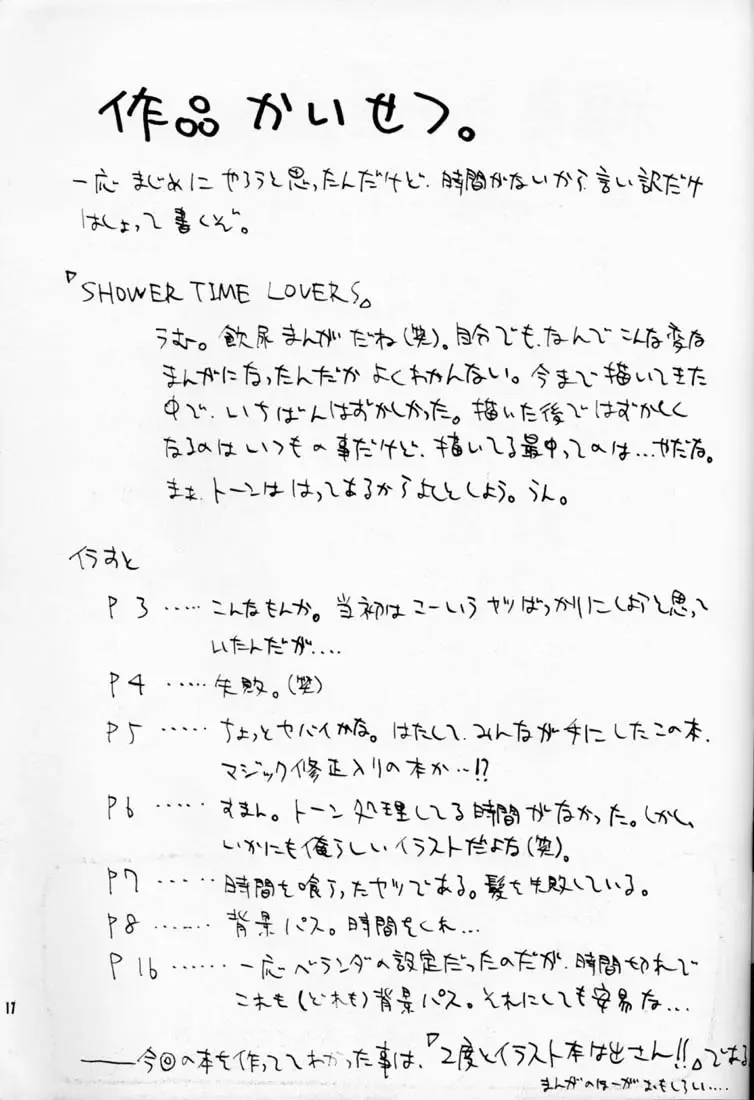 作品かいせつ。
一応まじめにやろうと思ったんだけど、時間がないから、言い訳だけ
はしょって書くぞ。
『SHOWER TIME LOVERS』
うむ。飲尿まんがだね(笑)。自分でも、なんでこんな変な
まんがになったんだかよくわかんない。今まで描いてきた
中で、いちばんはずかしかった。描いた後ではずかしく
なるのはいつもの事だけど、描いてる最中ってのは…やだな。
まぁ、トーンははってあるからよしとしよう。うん。
イラすと
P3 ….. こんなもんか。当初はこーいうヤツばっかりにしようと思って
いたんだが….
P4 ….. 失敗。(笑)
P5 ….. ちょっとヤバイかな。はたして、みんなが手にしたこの本、
マジック修正入りの本か…!?
P6 ….. すまん。トーン処理してる時間がなかった。しかし、
いかにも俺らしいイラストだよな(笑)。
P7 …… 時間を喰ったヤツである。髪を失敗している。
P8 …… 背景パス。時間をくれ…
P16 …… 一応ベランダの設定だったのだが、時間切れで
これも(どれも)背景パス。それにしても安易な….
17
――今回の本を作っててわかった事は、『2度とイラスト本は出さん!!』である
まんがのほーがおもしろい….